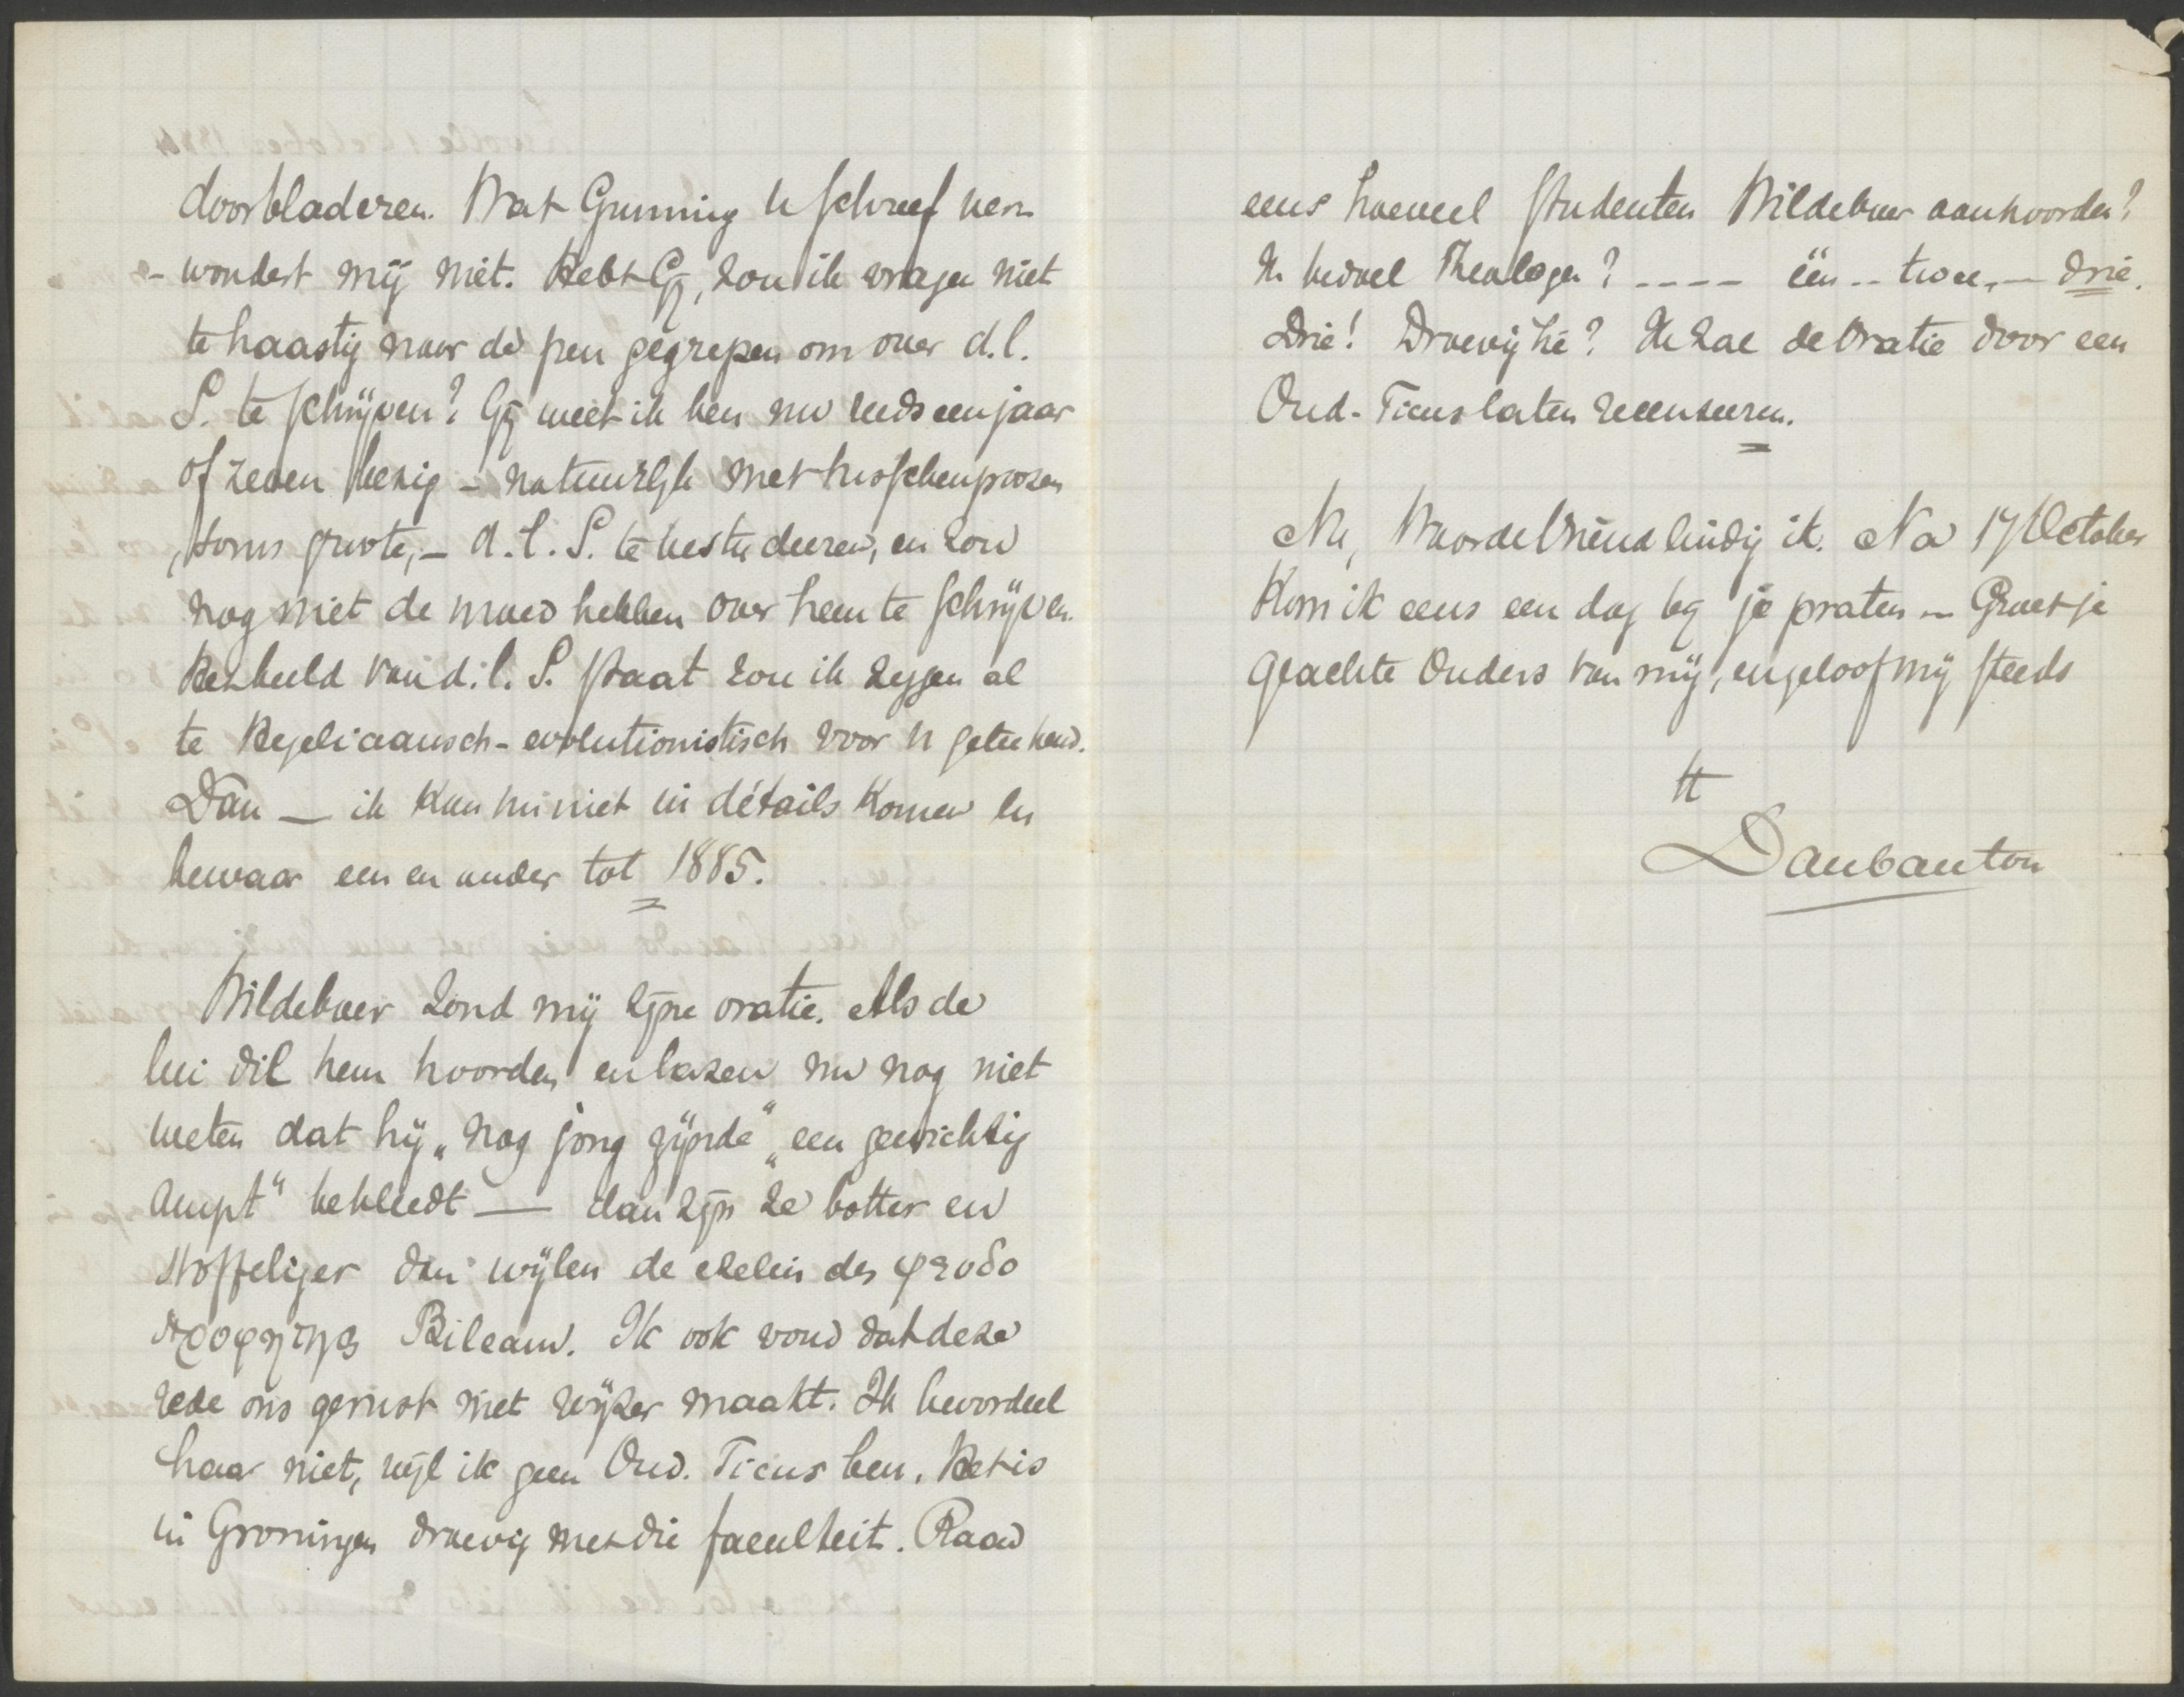 doorbladeren. Wat Gunning U schreef ver-
- wondert mij niet. Hebt Gij, zou ik vragen niet
te haastig naar de pen gegrepen om over d.l.
S. te schrijven? Gij weet ik ben nu reeds een jaar
of zeven bezig – natuurlijk met tusschenpoozen
, soms groote, – d. l. S. te bestudeeren, en zou
nog niet de moed hebben over hem te schrijven.
Het beeld van d. l. S. staat zou ik zeggen al
te Hegeliaansch-evolutionistisch voor U geteekend.
Dan — ik kan nu niet in détails komen en
bewaar een en ander tot 1885.
Wildeboer zond mij zijne oratie. Als de
lui die hem hoorden en lazen nu nog niet
weten dat hij „nog jong zijnde" „een gewichtig
ampt" bekleedt — dan zijn ze botter en
stoffeliger dan wijlen de ezelin des ψευδο
προφητης Bileam. Ik ook vond dat deze
rede ons gerust niet wijzer maakt. Ik beoordeel
haar niet, wijl ik geen Oud. Ticus ben. Het is
in Groningen droevig met die faculteit. Raad
eens hoeveel studenten Wildeboer aanhoorden?
Ik bedoel Theologen? ---- één -- twee, — drie.
Drie! Droevig hè? Ik zal de Oratie door een
Oud-Ticus laten recenseeren.
Nu, Waarde Vriend eindig ik. Na 17 October
Kom ik eens een dag bij je praten – Groet je
geachte Ouders van mij, en geloof mij steeds
tt
Daubanton